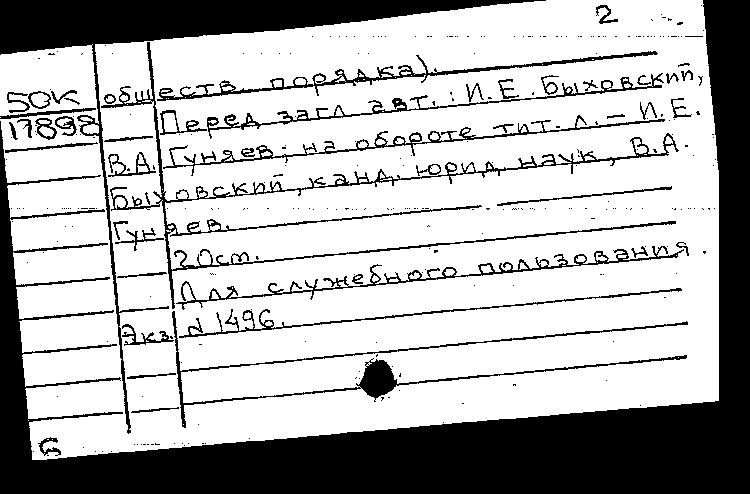 2
50К обществ. порядка).
17898 Перед загл авт.: И.Е. Быховский,
В.А. Гуняев; на обороте тит. л. – И.Е.
Быховский, канд. юрид. наук, В.А.
Гуняев.
20см.
Для служебного пользования.
Экз. № 1496.